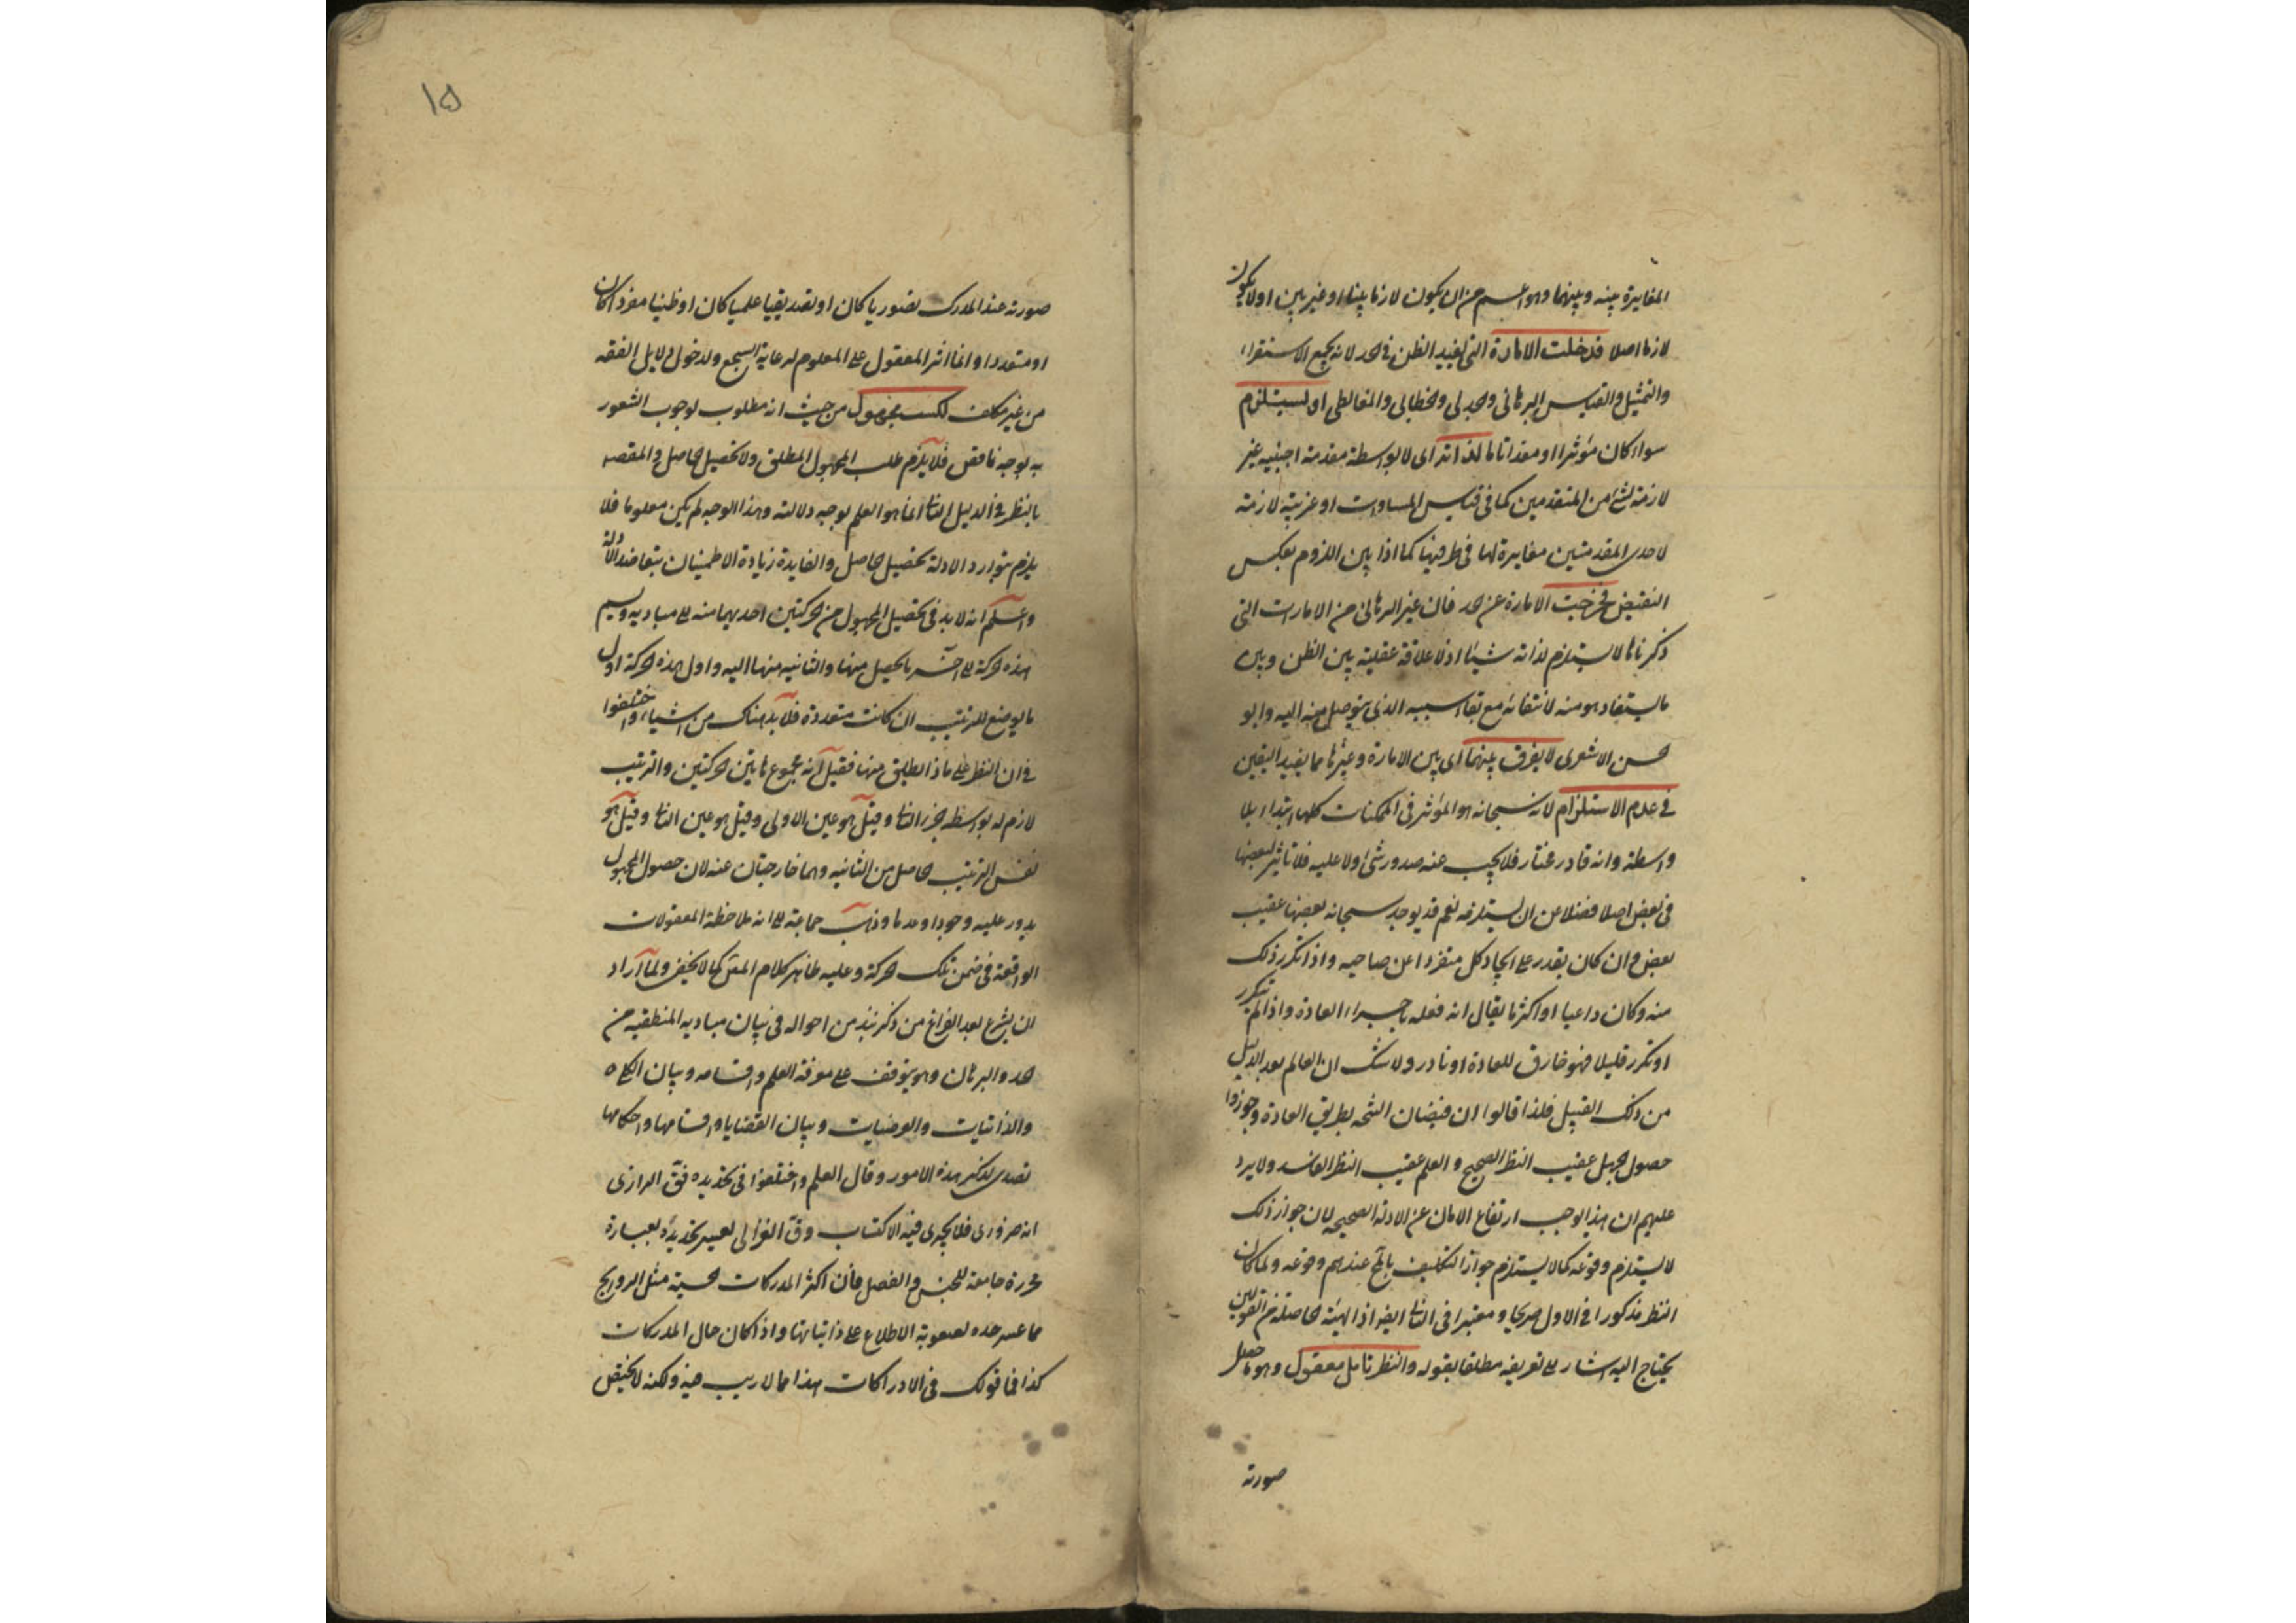 المغايرة بينه وبينهما وهو اعم من ان يكون لازما بينا او غير بين او لا يكون
لازما اصلا فدخلت الامارة التي تفيد الظن في الحد لانه يجمع الاستقراء
والتمثيل والقياس البرهاني والجدلي والخطابي والمغالطي او يستلزم
سواء كان مؤثرا او معدا تاما لذاته اى لا بواسطة مقدمة اجنبيه غير
لازمة لشئ من المتقدمين كما في قياس المساوات او غريبة لازمة
لاحدى المقدمتين مغايرة لها في طرفيها كما اذا بين اللزوم بعكس
النقيض فخرجت الامارة عن الحد فان غير البرهاني من الامارت التى
ذكرناها لا يستلزم لذاته شيئا اذ لا علاقة عقلية بين الظن وبين
ما يستفاد هو منه لانتفائه مع بقاء سببه الذي يتوصل منه اليه وابو
الحسن الاشعرى لا يفرق بينهما اى بين الامارة وغيرها مما يفيد اليقين
في عدم الاستلزام لانه سبحانه هو المؤثر في الممكنات كلها ابتداء بلا
واسطة وانه قادر مختار فلا يجب عنه صدور شئ ولا عليه فلا تاثير لبعضها
في بعض اصلا فضلا عن ان يستلزمه نعم قد يوجد سبحانه بعضها عقيب
بعض وان كان يقدر على ايجاد كل منفردا عن صاحبه واذا تكرر ذلك
منه وكان دائميا او اكثريا يقال انه فعله باجراء العادة واذا لم يتكرر
او تكرر قليلا فهو خارق للعادة او نادر ولا شك ان العالم بعد الدليل
من ذلك القبيل فلذا قالوا ان فيضان النتيجة بطريق العادة وجوزوا
حصول الجهل عقيب النظر الصحيح والعلم عقيب النظر الفاسد ولا يرد
عليهم ان هذا يوجب ارتفاع الامان عن الادلة الصحيحه لان جواز ذلك
لا يستلزم وقوعه كما لا يستلزم جواز التكليف بالمح عندهم وقوعه ولما كان
النظر مذكورا في الاول صريحا ومعتبرا في الثانى ايضا اذ الهيئة الحاصلة من القولين
يحتاج اليه اشار الى تعريفه مطلقا بقوله والنظر تامل معقول وهو ما حصل
صورته
١٥
صورته عند المدرك تصوريا كان او تصديقيا علميا كان او ظنيا مفردا كان
او متعددا وانما اثر المعقول على المعلوم لرعاية السجع ولدخول دلايل الفقه
من غير تكلف لكسب مجهول من حيث انه مطلوب لوجوب الشعور
به بوجه ناقص فلا يلزم طلب المجهول المطلق ولا تحصيل الحاصل والمقصد
بالنظر في الدليل الثانى انما هو العلم بوجه دلالته وهذا الوجه لم يكن معلوما فلا
يلزم بتوارد الادلة تحصيل الحاصل والفايدة زيادة الاطمينان بتعاضد الادلة
واعلم انه لا بد في تحصيل المجهول من حركتين احديهما منه الى مباديه ويسمى
هذه الحركة الى اخر ما يحصل منها والثانيه منها اليه واول هذه الحركة اول
ما يوضع للترتيب ان كانت متعددة فلا بد هناك من اشياء واختلفوا
في ان النظر على ماذا يطلق منها فقيل انه مجموع هاتين الحركتين والترتيب
لازم له بواسطة الجزء الثانى وقيل هو عين الاولى وقيل هو عين الثانى وقيل هو
نفس الترتيب الحاصل من الثانيه وهما خارجتان عنه لان حصول المجهول
يدور عليه وجودا وعدما وذهب جماعة الى انه ملاحظة المعقولات
الواقعة في ضمن تلك الحركة وعليه ظاهر كلام المص كما لا يخفى ولما اراد
ان يشرع بعد الفراغ من ذكر نبذ من احواله في بيان مباديه المنطقيه من
الحد والبرهان وهو يتوقف على معرفة العلم واقسامه وبيان الكليات
والذاتيات والعرضيات وبيان القضايا واقسامها واحكامها
تصدى لذكر هذه الامور وقال العلم واختلفوا في تحديده فق الرازى
انه ضرورى فلا يجرى فيه الاكتساب وق الغزالى تعسر تحديده بعبارة
محررة جامعة للجنس والفصل فان اكثر المدركات الحسية مثل الروايح
مما عسر حده لصعوبة الاطلاع على ذاتياتها واذا كان حال المدركات
كذا فما قولك في الادراكات هذا مما لا ريب فيه ولكنه لا يختص